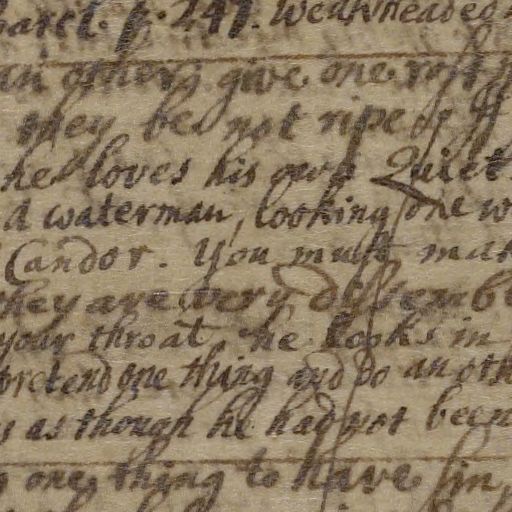 p. 247. Weakheaded
others give one rest
they be not ripe of
he loves his own Quiet
a waterman, looking one w
Candor. You must mak
they are very dissembl
your throat he looks in
pretend one thing and do anoth
as though he had not been
one thing to have sin